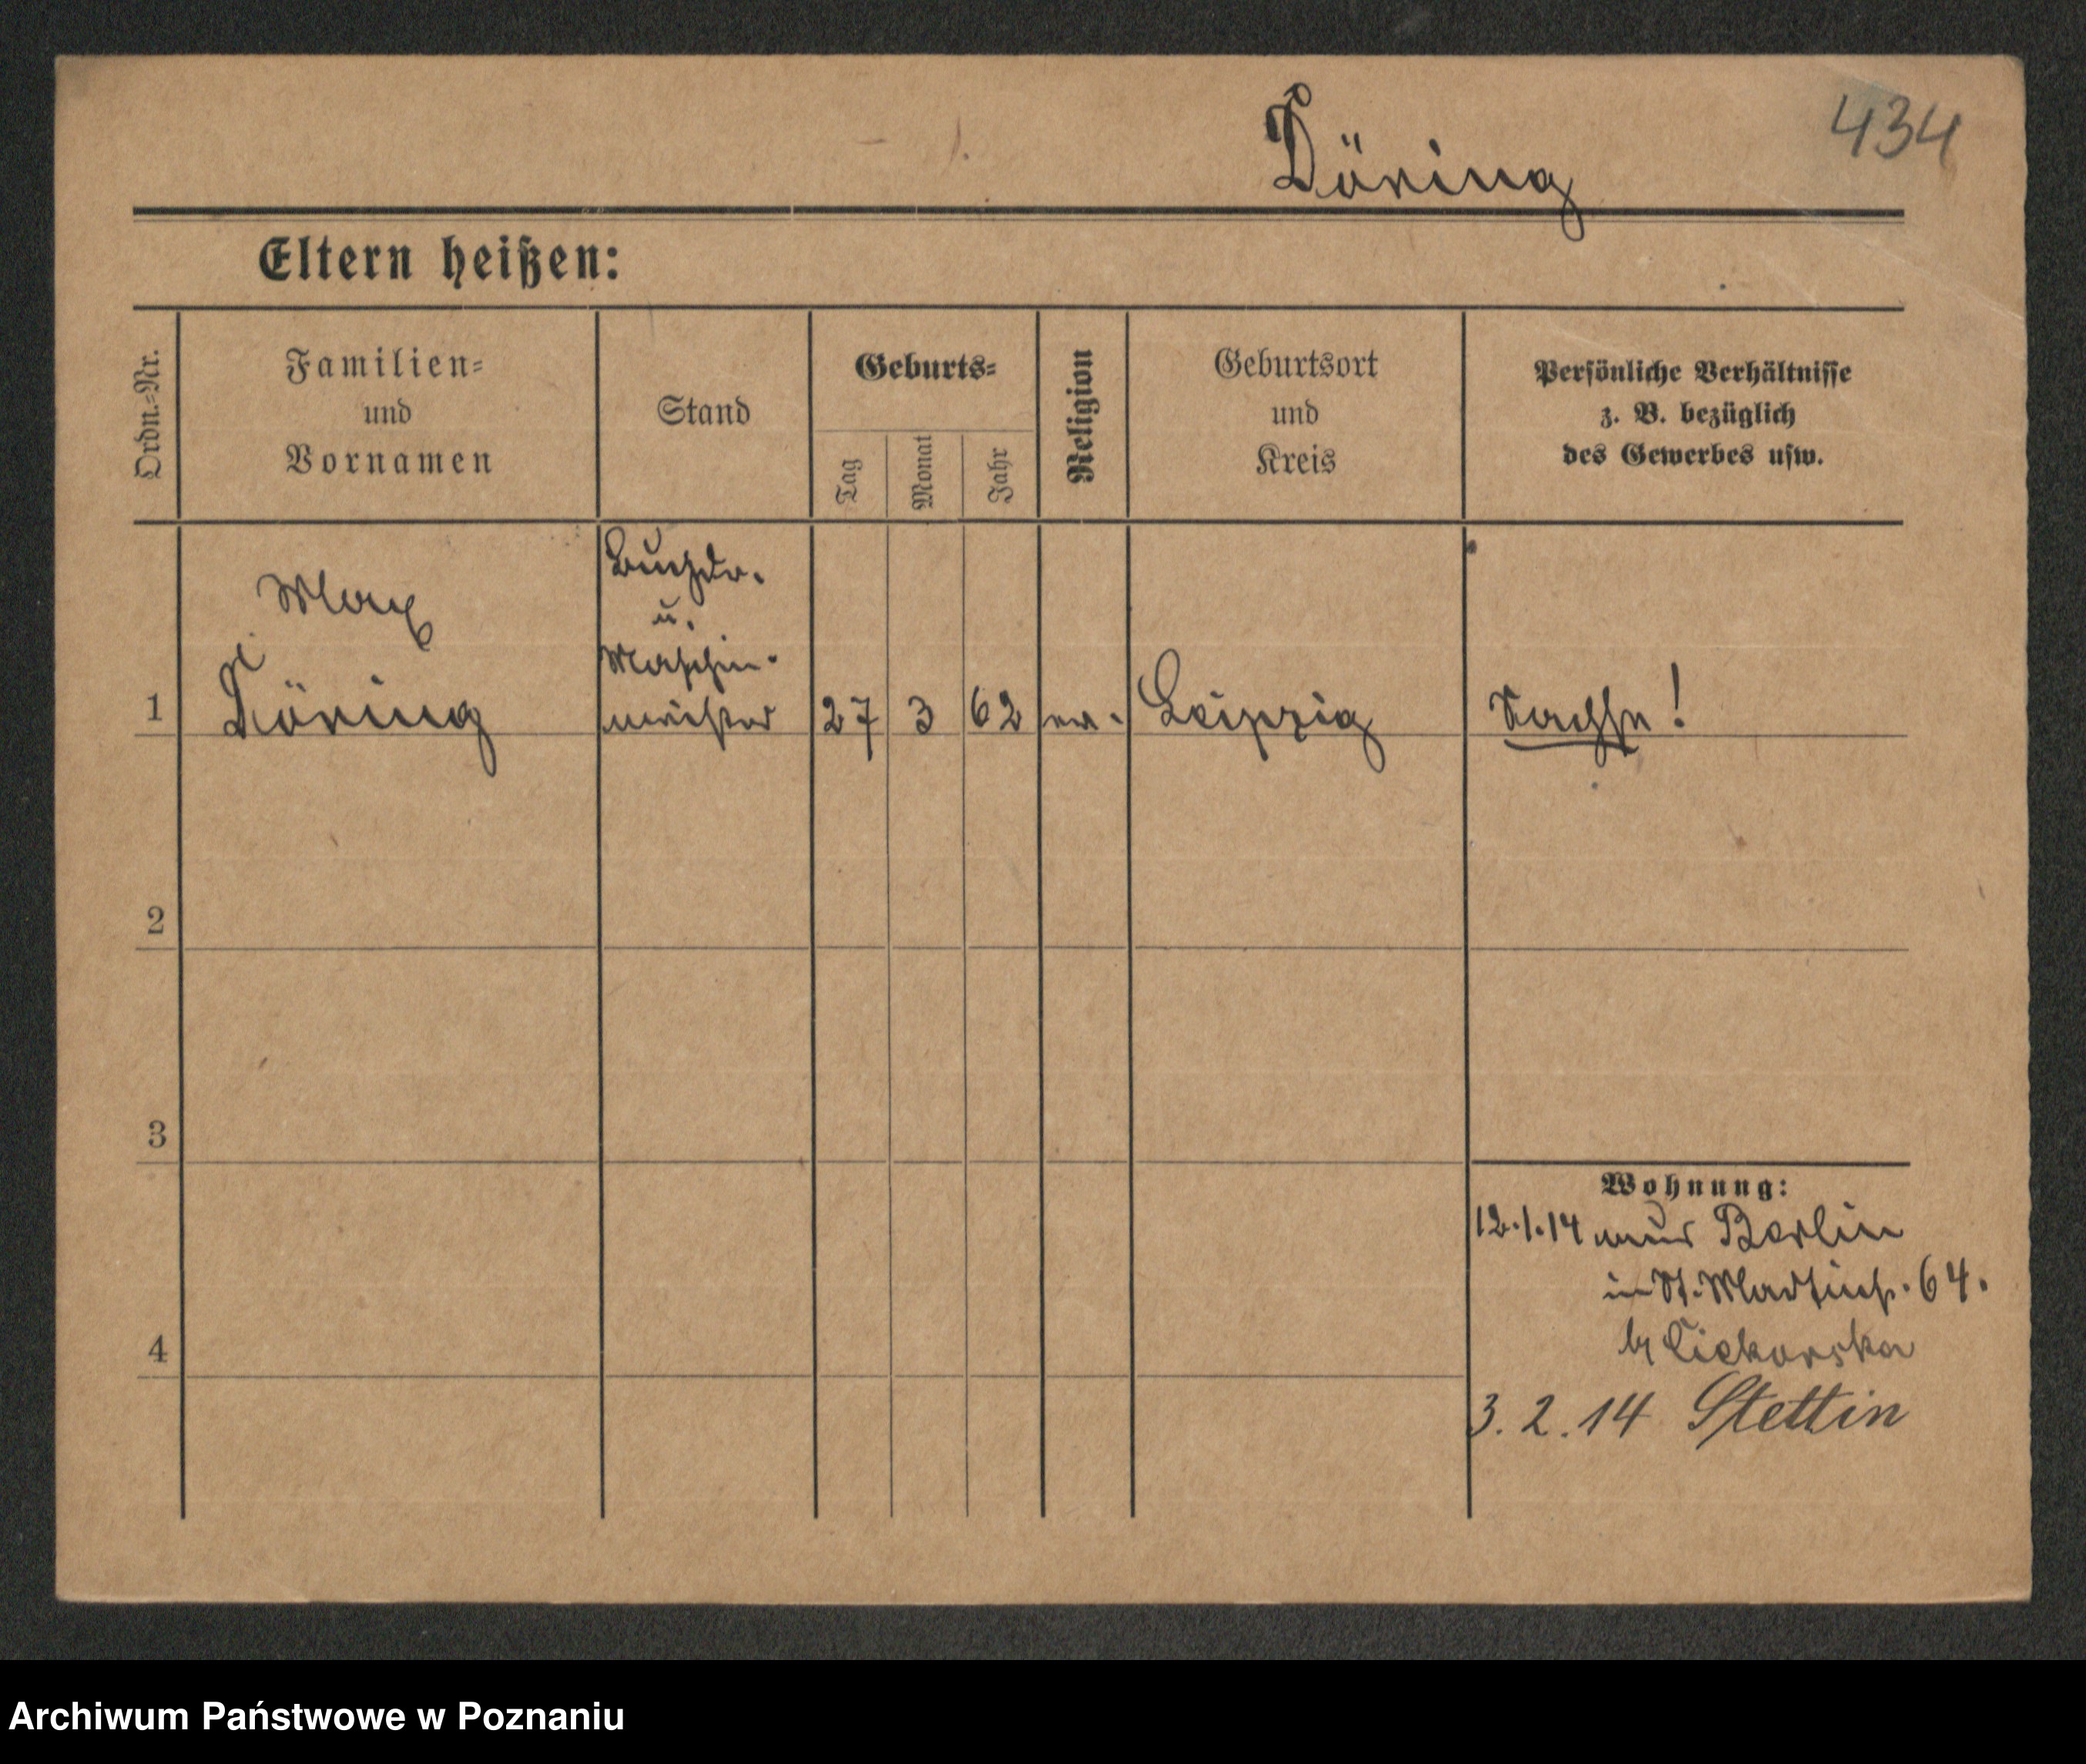 434
Döring
Eltern heißen:
Ordn.=Nr.
Familien=
und
Vornamen
Stand
Geburts=
Tag
Monat
Jahr
Religion
Geburtsort
und
Kreis
Persönliche Verhältnisse
z. B. bezüglich
des Gewerbes usw.
Max
Döring
Buchdr.
u.
Maschin-
meister
1
27 3 62 ev. Leipzig Sachse!
2
3
4
Wohnung:
12.1.14 aus Berlin
in St. Martinstr. 64.
b/
3.2.14 Stettin
Archiwum Państwowe w Poznaniu